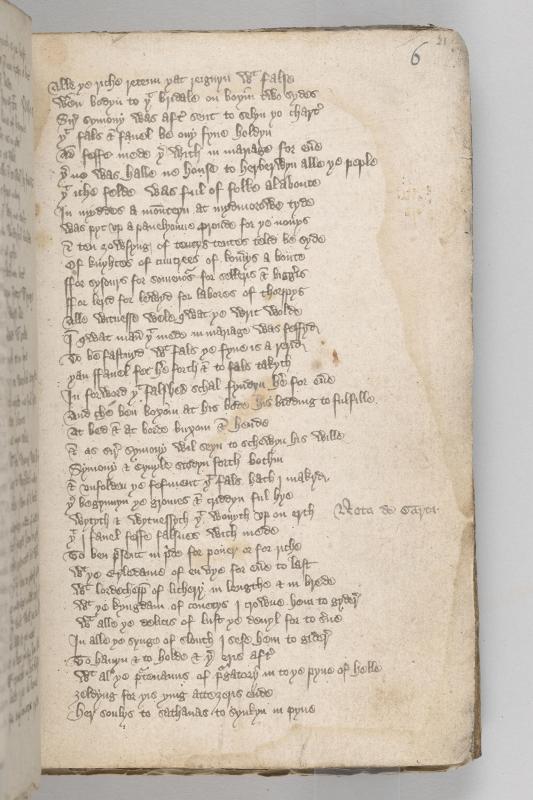 6
21
Alle ye riche retenu yat reignyn wt false
Wern bedyn to ye bridale on boyin two sydes
Sire symony was aft sent to selyn ye chartr
yt fals & fauel be ony fyne holdyn
And feffe mede yr with in mariage for eure
yr no was halle ne house to herberwyn alle ye peple
yt iche felde was ful of folke al aboute
In myddes a mounteyn at mydmorwe tyde
was pyt up a paueyloun proude for ye nonys
& ten yowsyng of tentys teldd be syde
Of knyhtes of cuntrees of a boute
ffor sysours for somenors for sellers & biggers
For lerid for lewyd for labores of thorpys
Alle witnesse wele qwat ye writ wolde
In qwat maner yt mede in mariage was feffyd
To be fastnyd wt fals ye fyne is a reryd
yan ffauel fet hr forth & to fals takyth
In forword yt falshed schal fyndyn hr for eure
And che ben boxom at his bode his bidding to fulfille
At bed & at borde buxom & hende
& as sire symony wil seyn to schewyn his wille
Symony & cyuyle stodyn forth bothin
& unfolden ye fefment yt fals hath i makyd
yr begynnyn ye gromes & gredyn ful hye
wytyth & wytnessyth yt wonyth up on erth
Nota de Carta
yt i fauel feffe falsnes with mede
To ben present in pride for pouer or for riche
wt ye Erledame of enuye for eure to last
wt lordechepp of lichery in lengthe & in brede
wt ye kyngdam of couetys i crowne hem to gyder
wt alle ye delicis of lust ye deuyl for to serue
In alle ye syngo of slouth i sese hem to gider
To hauyn & to holde & yr eris aftr
wt al ye purtenaunis of purgatory in to ye pyne of helle
zeldyng for yis ying at zeris ende
her soulys to sathanas to synkyn in pyne